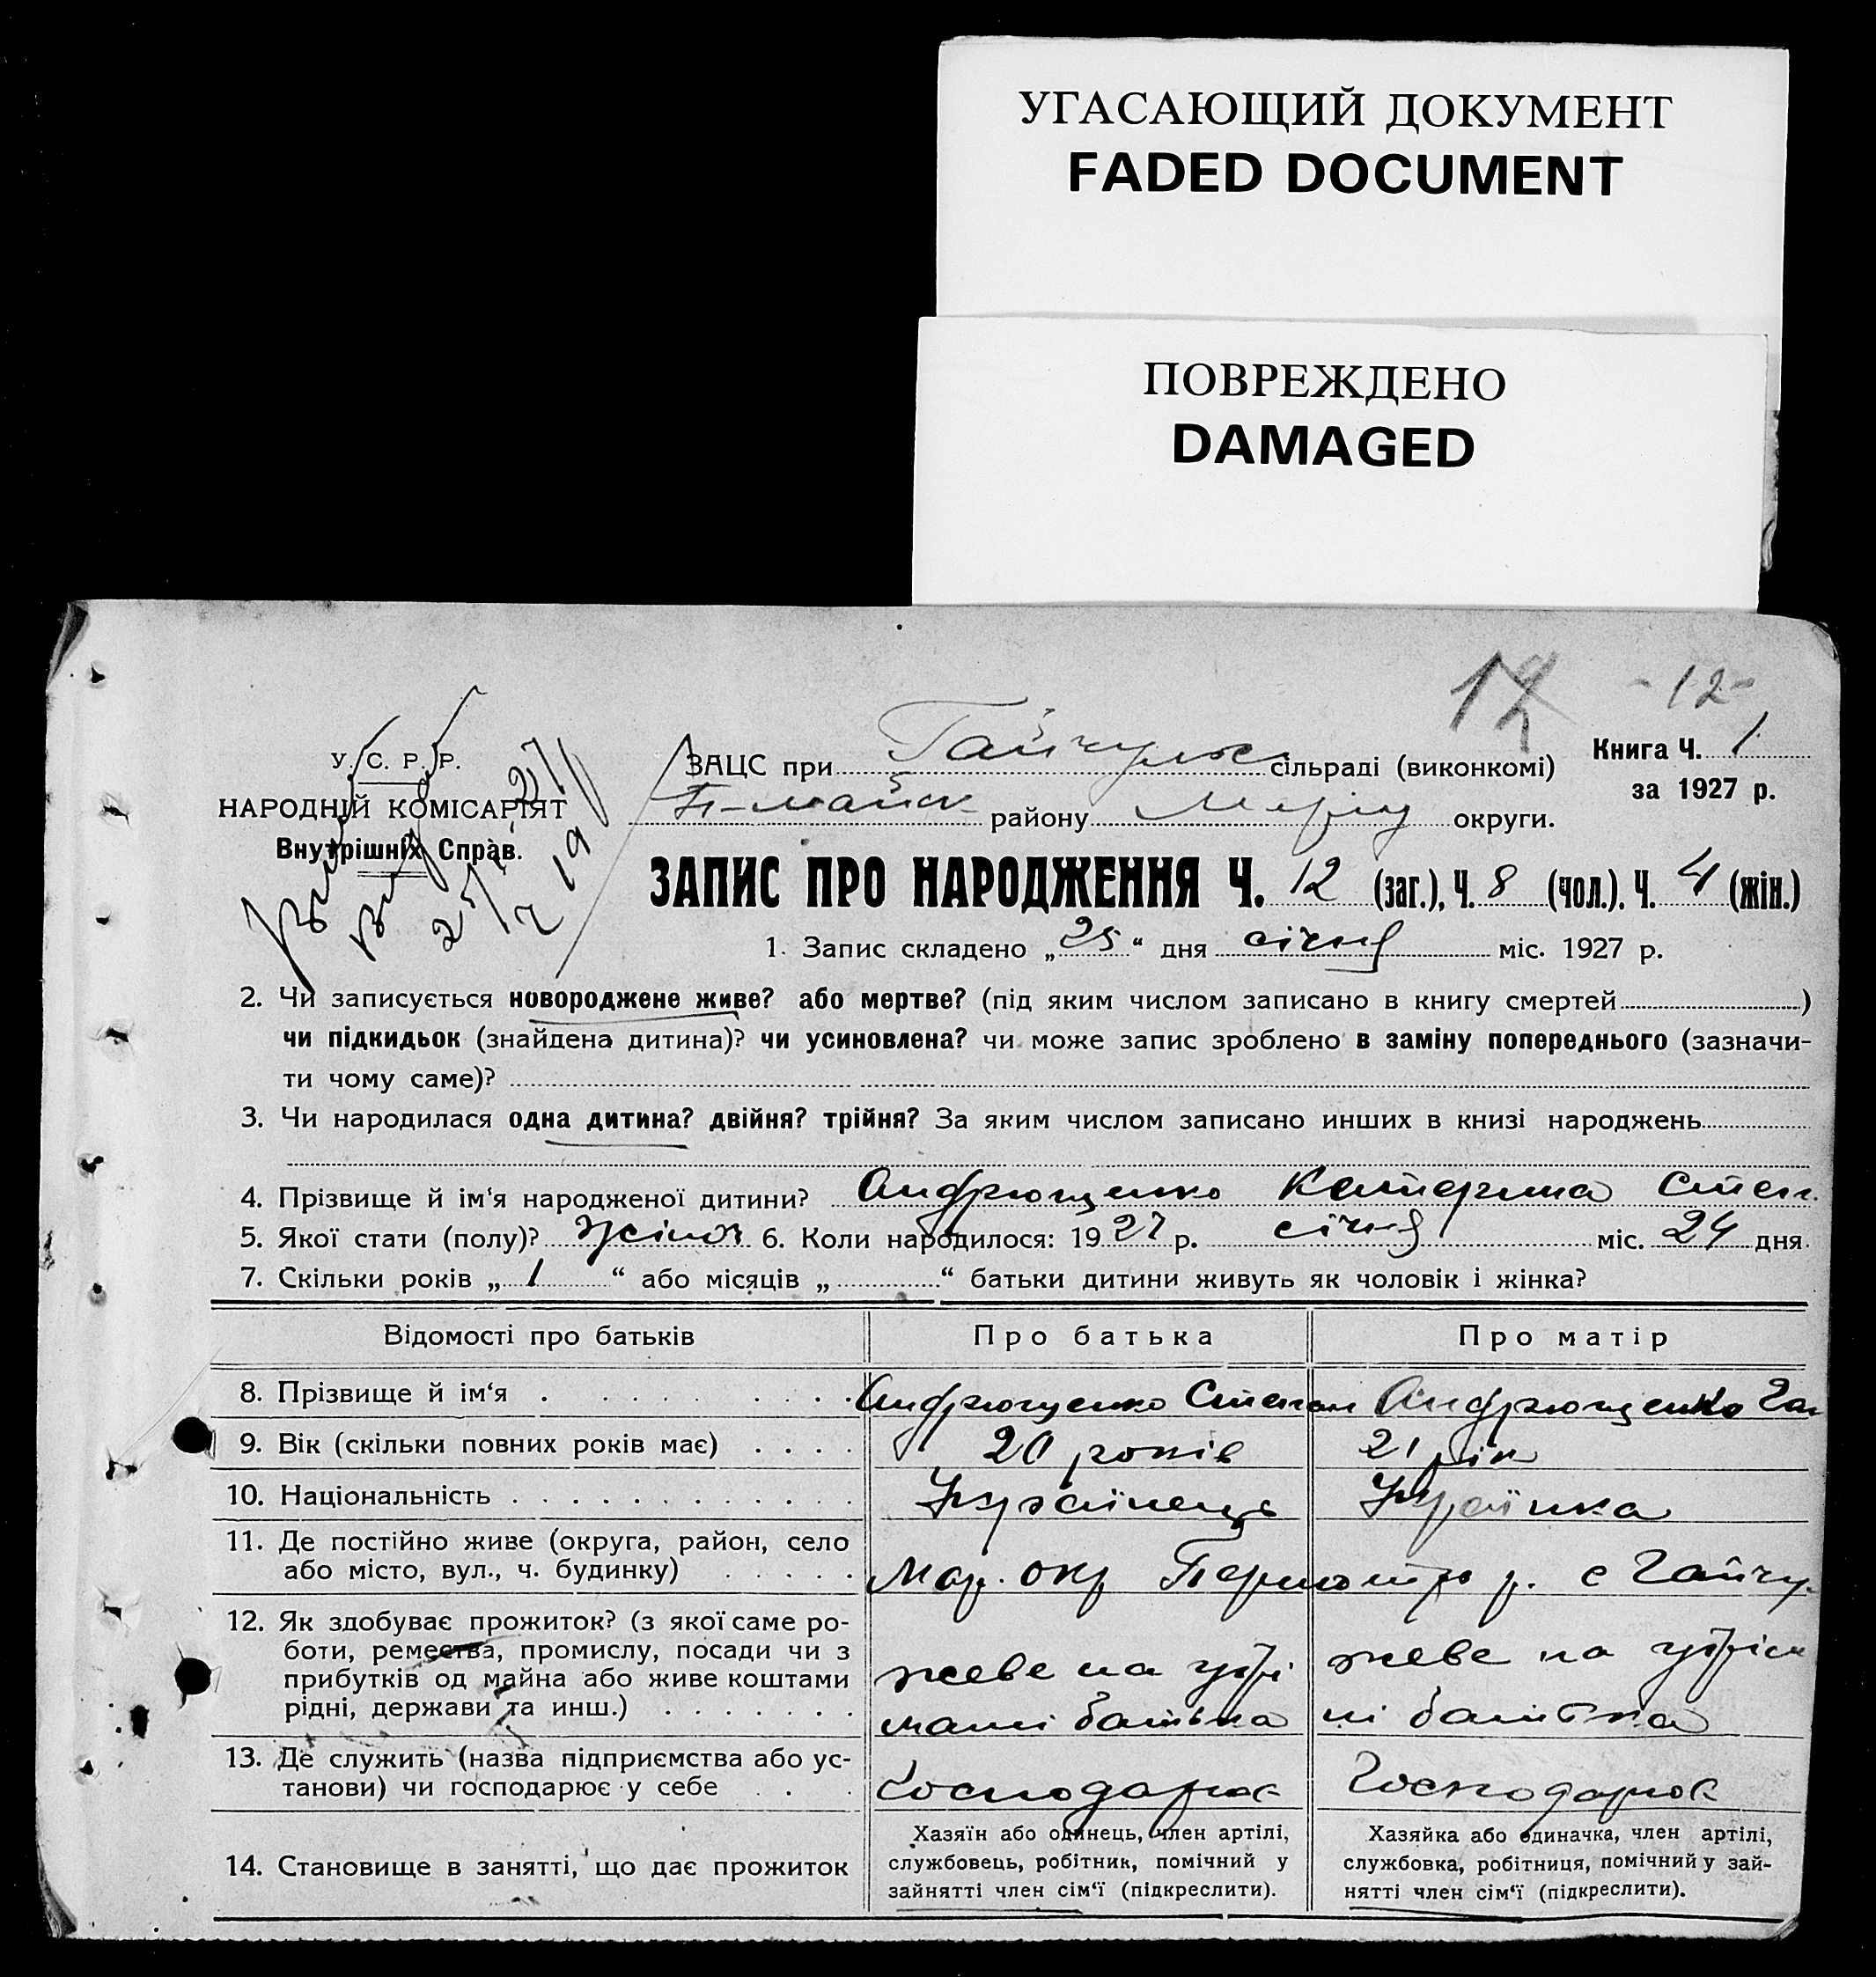 УГАСАЮЩИЙ ДОКУМЕНТ
FADED DOCUMENT
ПОВРЕЖДЕНО
DAMAGED
12 -12-
У. С. Р. Р.
НАРОДНІЙ КОМІСАРІЯТ
Внутрішніх Справ.
ЗАЦС при Гайчулс сільраді (виконкомі)
Книга Ч. 1
за 1927 р.
П-майськ району Маріу округи.
ЗАПИС ПРО НАРОДЖЕННЯ Ч. 12 (заг.), Ч. 8 (чол.). Ч. 4 (жін.)
1. Запис складено „25“ дня січня міс. 1927 р.
2. Чи записується новороджене живе? або мертве? (під яким числом записано в книгу смертей )
чи підкидьок (знайдена дитина)? чи усиновлена? чи може запис зроблено в заміну попереднього (зазначи-
ти чому саме)?
3. Чи народилася одна дитина? двійня? трійня? За яким числом записано инших в книзі народжень
4. Прізвище й ім‘я народженої дитини? Андрющенко Катерина Степ.
5. Якої стати (полу)? жіноч 6. Коли народилося: 1927 р. січня міс. 24 дня.
7. Скільки років „ 1 “ або місяців „ “ батьки дитини живуть як чоловік і жінка?
Відомості про батьків Про батька Про матір
8. Прізвище й ім‘я Андрющенко Степан Андрющенко Ган
9. Вік (скільки повних років має) 20 років 21 рік
10. Національність Українець Українка
11. Де постійно живе (округа, район, село
або місто, вул., ч. будинку) Мар. окр р. с Гайчу
12. Як здобуває прожиток? (з якої саме ро-
боти, ремества, промислу, посади чи з
прибутків од майна або живе коштами
рідні, держави та инш.)
живе на утри
манні батька
живе на утрiм
ні батька
13. Де служить (назва підприємства або ус-
танови) чи господарює у себе Господарює Господарює
14. Становище в занятті, що дає прожиток
Хазяїн або одинець, член артілі,
службовець, робітник, помічний у
зайнятті член сім‘ї (підкреслити).
Хазяйка або одиначка, член артілі,
службовка, робітниця, помічний у зай-
нятті член сім‘ї (підкреслити).